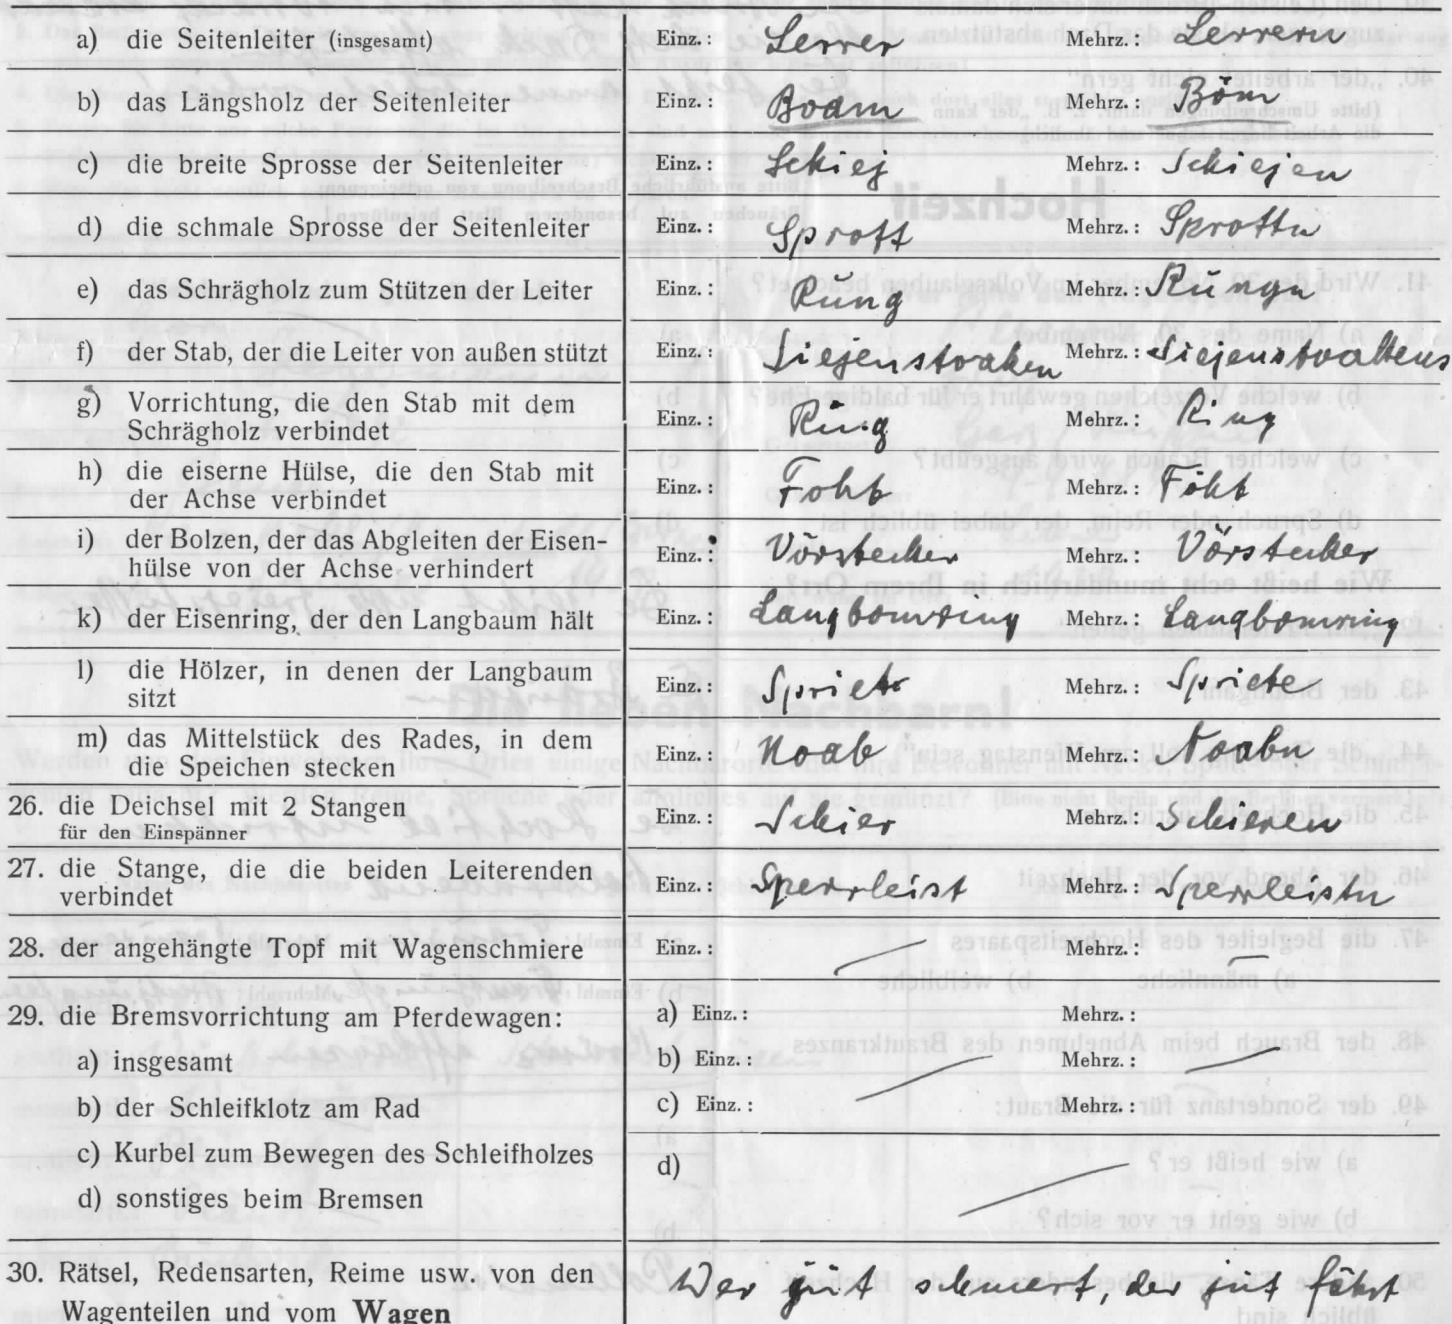 a) die Seitenleiter (insgesamt) Einz.: Lerrer Mehrz.: Lerrern
b) das Längsholz der Seitenleiter Einz.: Boam Mehrz.: Böm
c) die breite Sprosse der Seitenleiter Einz.: Schiej Mehrz.: Schiejen
d) die schmale Sprosse der Seitenleiter Einz.: Sprott Mehrz.: Sprottn
e) das Schrägholz zum Stützen der Leiter Einz.: Rung Mehrz.: Rungn
f) der Stab, der die Leiter von außen stützt Einz.: Liejenstoaken Mehrz.:
g) Vorrichtung, die den Stab mit dem
Schrägholz verbindet Einz.: Ring Mehrz.: Ring
h) die eiserne Hülse, die den Stab mit
der Achse verbindet Einz.: Mehrz.:
i) der Bolzen, der das Abgleiten der Eisen-
hülse von der Achse verhindert Einz.: Vörstecker Mehrz.: Vörstecker
k) der Eisenring, der den Langbaum hält Einz.: Langbomring Mehrz.: Langbomring
l) die Hölzer, in denen der Langbaum
sitzt Einz.: Spriete Mehrz.: Spriete
m) das Mittelstück des Rades, in dem
die Speichen stecken Einz.: Noab Mehrz.: Noabn
26. die Deichsel mit 2 Stangen
für den Einspänner Einz.: Schier Mehrz.: Schieren
27. die Stange, die die beiden Leiterenden
verbindet Einz.: Sperrleist Mehrz.: Sperrleistn
28. der angehängte Topf mit Wagenschmiere Einz.: — Mehrz.: —
29. die Bremsvorrichtung am Pferdewagen: a) Einz.: Mehrz.:
a) insgesamt b) Einz.: — Mehrz.: —
b) der Schleifklotz am Rad c) Einz.: Mehrz.:
c) Kurbel zum Bewegen des Schleifholzes d) —
d) sonstiges beim Bremsen
30. Rätsel, Redensarten, Reime usw. von den Wer jut schmert, der jut föhrt
Wagenteilen und vom Wagen